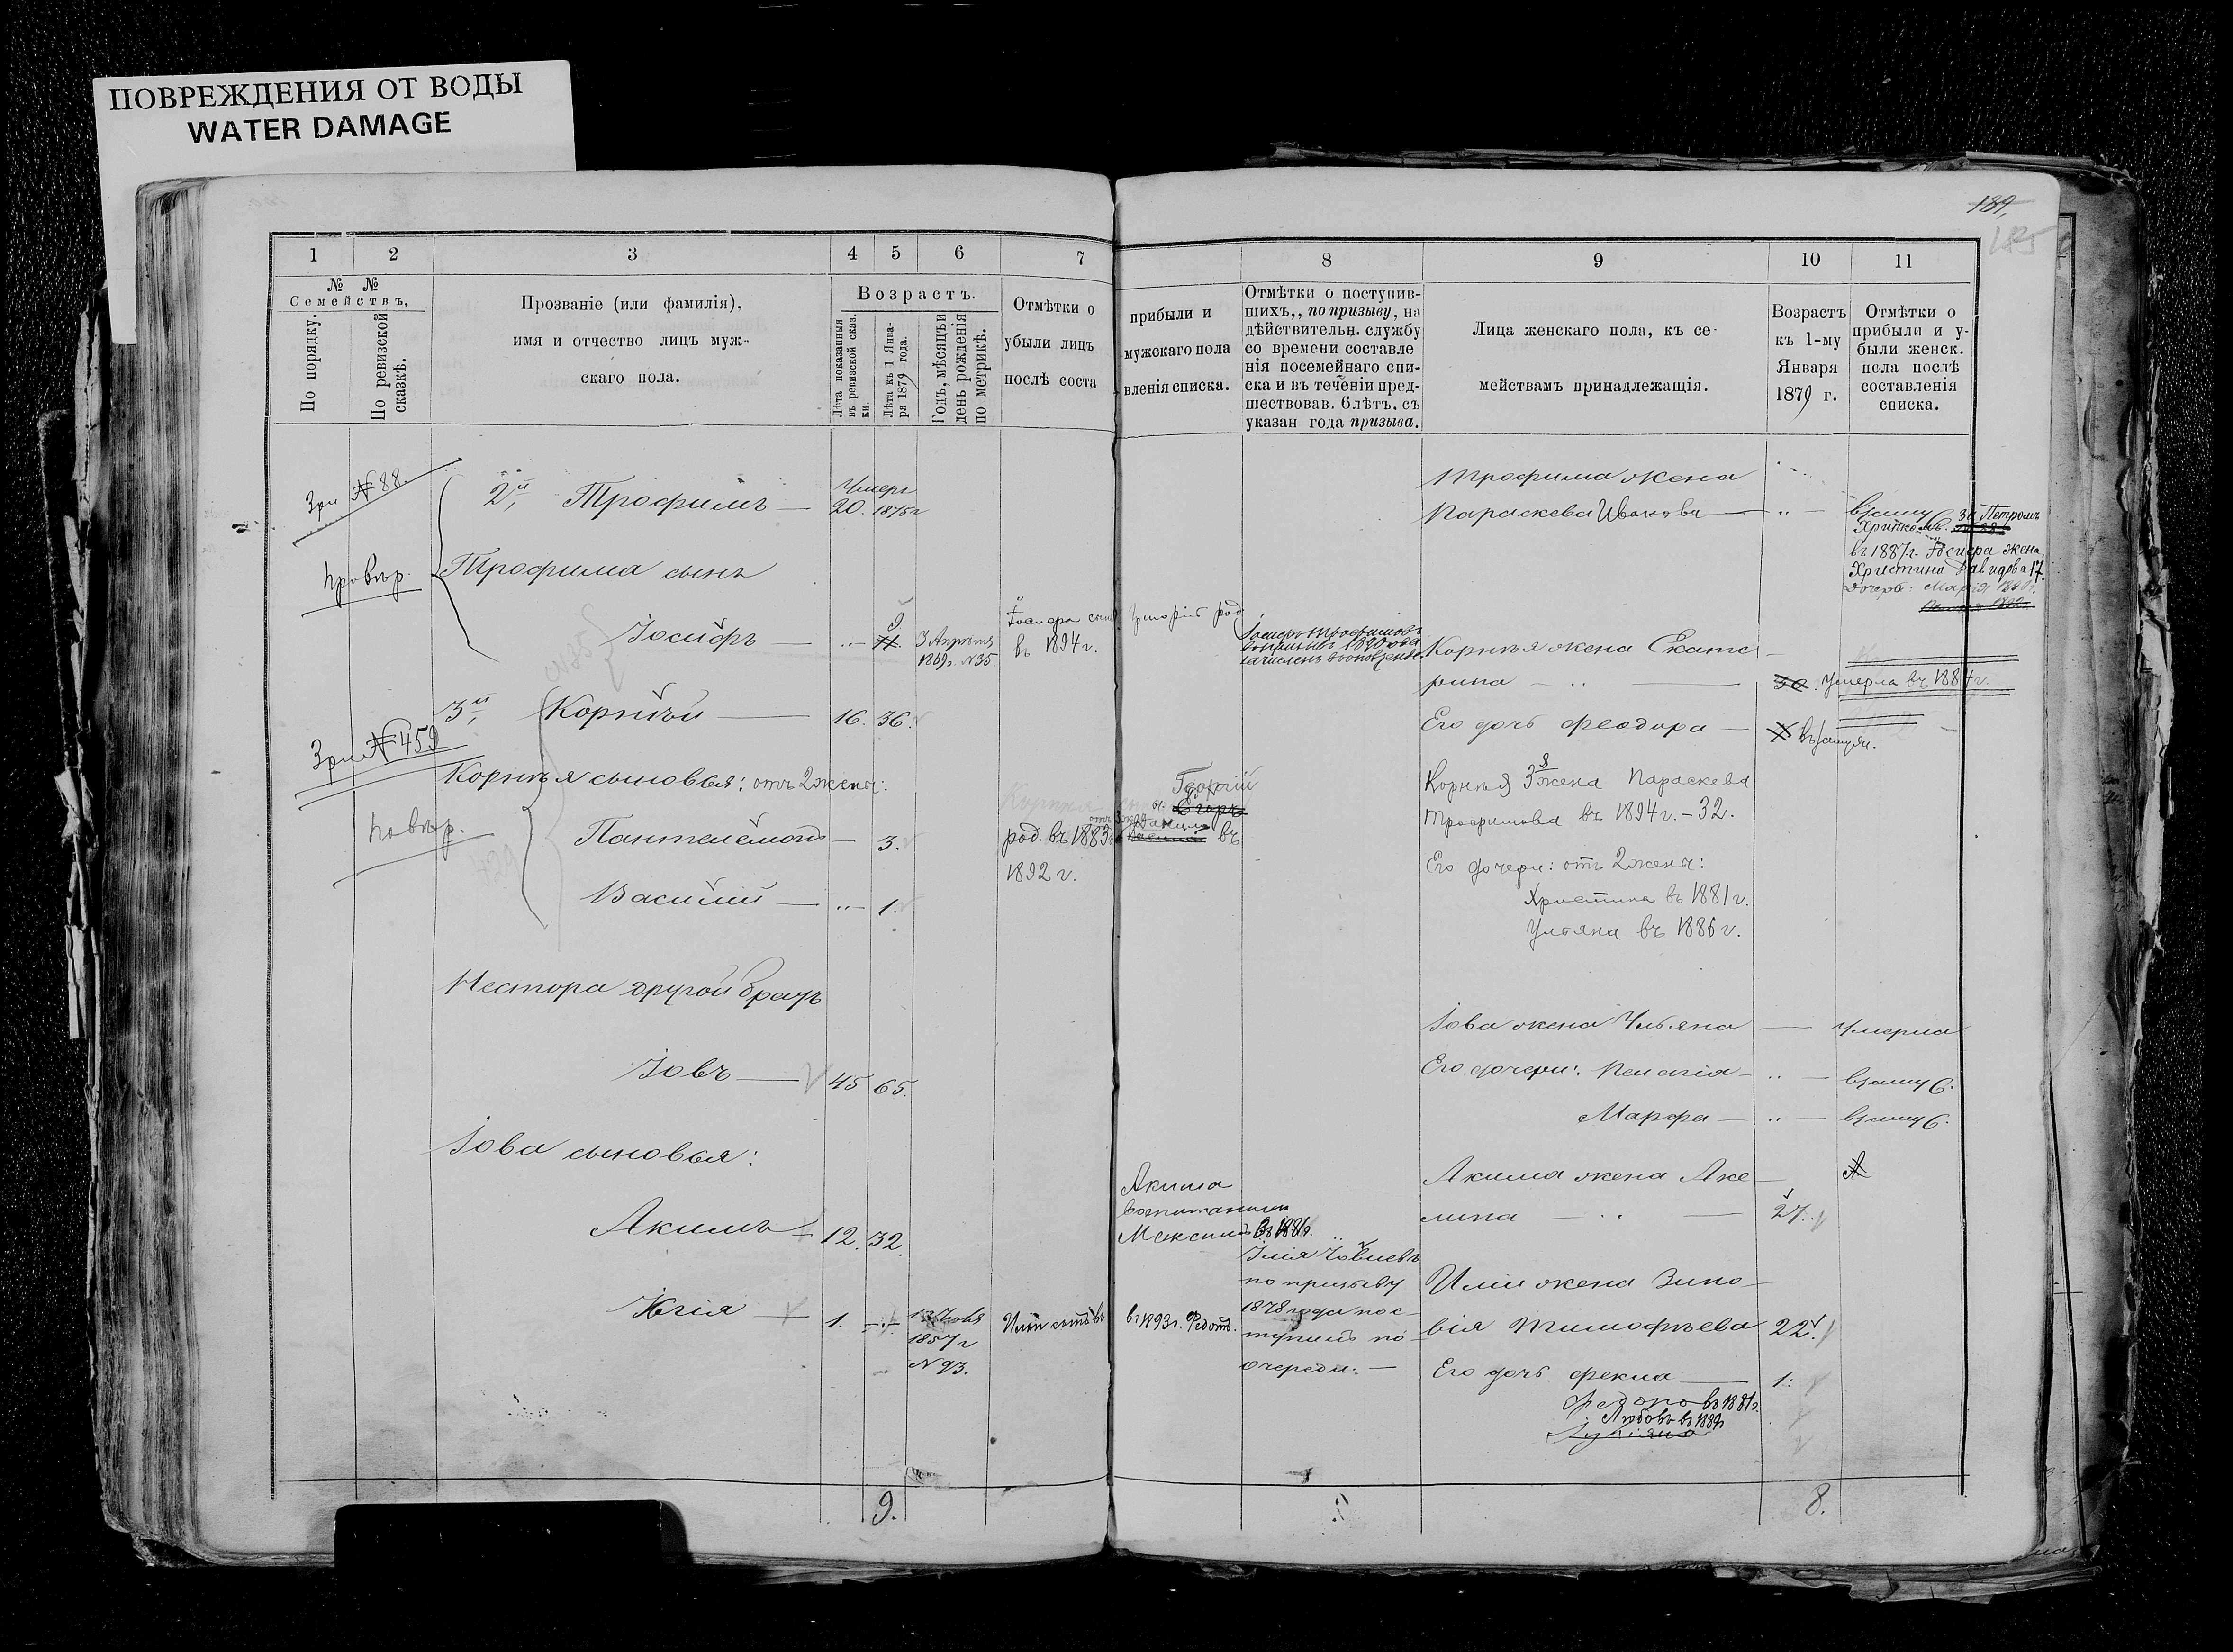 ПОВРЕЖДЕНИЯ ОТ ВОДЫ
WATER DAMAGE
189,
1 2 3 4 5 6 7 8 9 10 11
№ №
Семействъ,
По порядку.
По ревизской сказкѣ.
Прозваніе (или фамилія),
имя и отчество лицъ муж-
скаго пола.
Возрастъ.
Лѣта показанныя въ ревизской сказ. ки.
Лѣта къ 1 Янва- ря 1879 года.
Годъ, мѣсяцъ и день рожденія по метрикѣ.
Отмѣтки о
убыли лицъ
послѣ соста
прибыли и
мужскаго пола
вленія списка.
Отмѣтки о поступив-
шихъ,, по призыву, на
дѣйствительн. службу
со времени составле
нія посемейнаго спи-
ска и въ теченіи пред-
шествовав. 6 лѣтъ. съ
указан года призыва.
Лица женскаго пола, къ се-
мействамъ принадлежащія.
Возрастъ
къ 1-му
Января
1879 г.
Отмѣтки о
прибыли и у-
были женск.
пола послѣ
составленія
списка.
Зри № 88.
2й, Трофимъ — 20. Умеръ 1875 г
Провѣр.
Трофима сынъ
Іосифъ — ..— 9
3 Апрѣля
1869 г. №35
Іосифа сынъ Григорій род
въ 1894 г.
Іосифъ Трофимовъ
въ призывъ 1890 года
зачисленъ въ ополченіе.
3й, Корнѣй — 16. 36.
Зри № 459
Корнѣя сыновья: отъ 2 жены:
Повѣр.
Пантелемонъ — 3.
Василій — ..— 1.
Корнѣя сын
Георгій
отъ 3 жены
род. въ 1883 г. Данилъ въ
1892 г.
Нестора другой братъ
Іовъ — 45 65.
Іова сыновья:
Акимъ 12. 32.
Акима
воспитанникъ
Максимъ въ 1881 г.
Илія — 1. —
1857 г
№ 93.
Иліи сынъ въ 1893 г. Федотъ.
Илія Іовлевъ
по призыву
1878 года пос-
тупилъ по
очереди. —
Трофима жена
Параскева Иванова — .. — взамуж за Петромъ
въ 1887 г. Іосифа жена
Христина Давидова 17.
Дочерь: Марія 1890 г.
Корнѣя жена Екате
рина — .. — 30. Умерла въ 1884 г.
Его дочь Феодора — взамуж.
Корнѣя 3я жена Параскева
Трофимова въ 1894 г. – 32.
Его дочери: отъ 2 жены:
Христина въ 1881 г.
Ульяна въ 1886 г.
Іова жена Ульяна — умерла
Его дочери: Пелагія — .. — взамуж.
Марфа — .. — взамуж.
Акима жена Аке
лина — .. — 27.
Иліи жена Зино-
вія Тимофѣева 22.
Его дочь Фекла — 1.
Федора въ 1881 г.
Любовь въ 1889 г
9.
8.